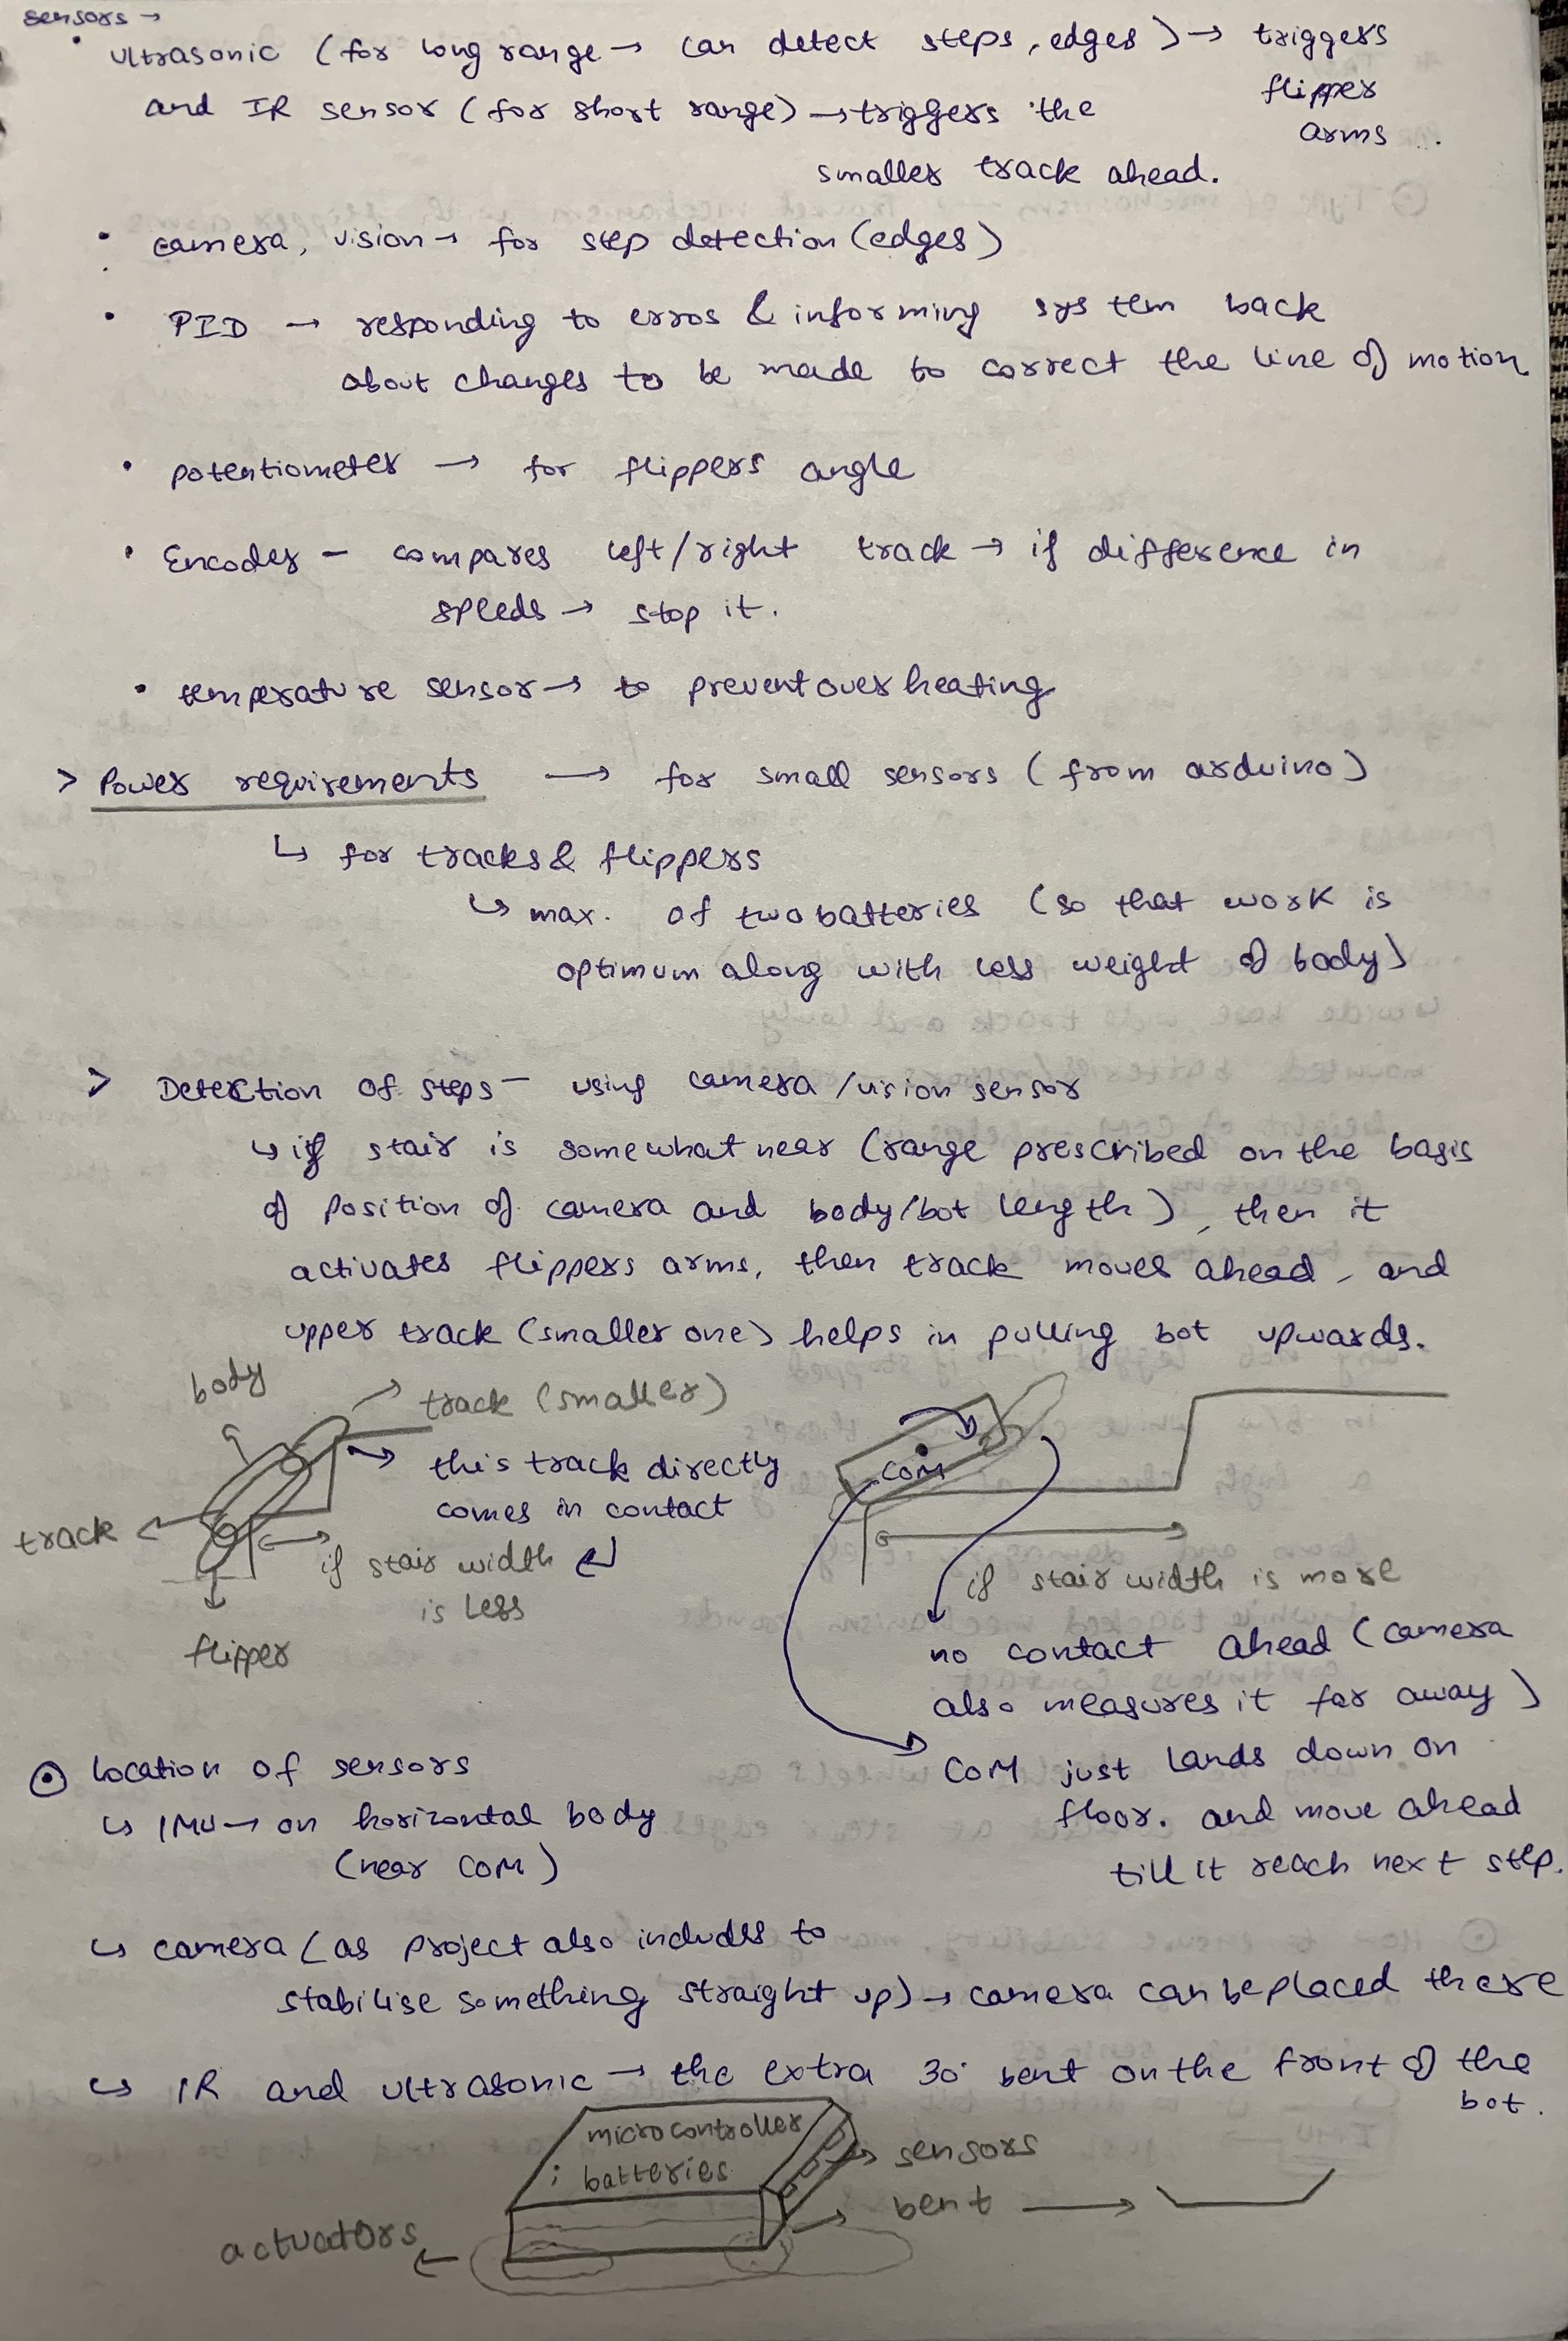 sensors →
• ultrasonic (for long range → can detect steps, edges) → triggers
flipper
arms
and IR sensor (for short range) → triggers the
smaller track ahead.
• camera, vision → for step detection (edges)
• PID → responding to erros & informing system back
about changes to be made to correct the line of motion
• potentiometer → for flippers angle
• Encoder - compares left/right track → if difference in
speeds → stop it.
• temperature sensor → to prevent overheating
> Power requirements → for small sensors (from arduino)
↳ for tracks & flippers
↳ max. of two batteries (so that work is
optimum along with less weight of body)
> Detection of steps - using camera/vision sensor
↳ if stair is somewhat near (range prescribed on the basis
of position of camera and body/bot length), then it
activates flippers arms, then track moves ahead, and
upper track (smaller one) helps in pulling bot upwards.
body
→ track (smaller)
→ this track directly
comes in contact
track ←
if stair width ↵
is less
flipper
COM
if stair width is more
no contact ahead (camera
also measures it far away)
COM just lands down on
floor. and move ahead
till it reach next step.
⊙ Location of sensors
↳ IMU → on horizontal body
(near COM)
↳ camera (as project also includes to
stabilise something straight up) → camera can be placed there
↳ IR and ultrasonic → the extra 30° bent on the front of the
bot.
microcontroller
; batteries
→ sensors
→ bent →
actuators
←